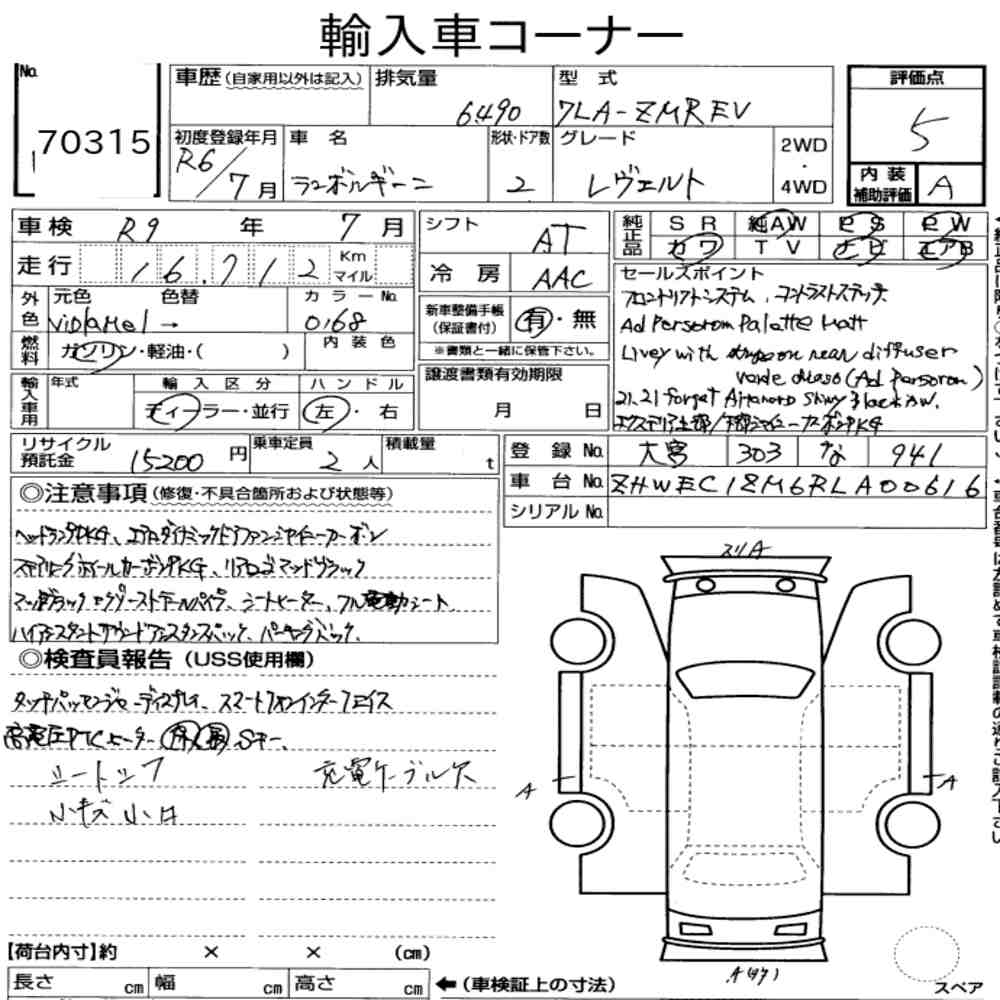 輸入車コーナー
No. 70315
車歴 (自家用以外は記入)
排気量 6490
型 式 7LA-ZMREV
初度登録年月 R6/7月
車 名 ランボルギーニ
形状・ドア数 2
グレード レヴェルト
2WD・4WD
評価点 5
内装補助評価 A
車検 R9 年 7 月
走行 16.712 Km マイル
外色 元色 ViolaMel → 色替
カラーNo. 0168
燃料 ガソリン・軽油・( )
内装色
輸入車用 年式
輸入区分 ディーラー・並行
ハンドル 左・右
シフト AT
冷房 AAC
新車整備手帳(保証書付) 有・無
※書類と一緒に保管下さい。
譲渡書類有効期限
月 日
純正品 SR 純AW PS PW
カワ TV ナビ エアB
セールスポイント
フロントリフトシステム、コントラストステッチ
Ad Persorom Palatte Matt
Livey with on rear diffuser
(Ad Persoron)
21.21 Shiny Black AW.
リサイクル預託金 15200 円
乗車定員 2 人
積載量 t
登録No. 大宮 303 な 941
車台No. ZHWEC1ZM6RLA00616
シリアルNo.
◎注意事項 (修復・不具合箇所および状態等)
ヘッドランプPKG、エアロダイナミックドアファンシャイニーカーボン
ステアリングホイールカーボンPKG、リアロゴマッドブラック
マッドブラックエグゾーストテールパイプ、シートヒーター、フル電動シート
ハイアシスタントアラウンドアシスタンスパック、パーキングパック、
◎検査員報告 (USS使用欄)
タッチパッセンジャーディスプレイ、スマートフォンインターフェイス
高電圧PTCヒーター (有)(長) Sキー、
シートシワ 充電ケーブル欠
小キズ小凹
スリA
A
A
A(タワ)
【荷台内寸】約 × × (cm)
長さ cm 幅 cm 高さ cm ←(車検証上の寸法)
スペア